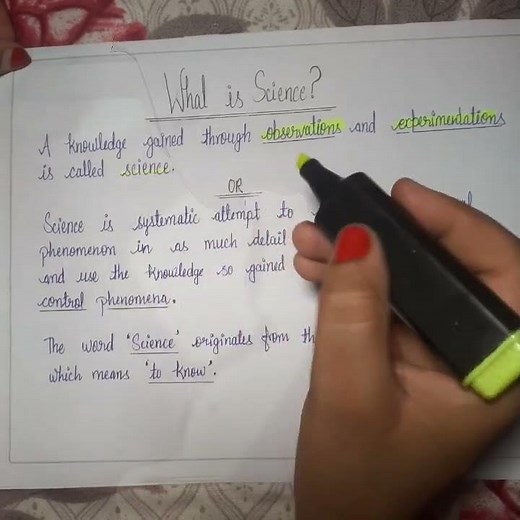 What is Science?
A knowledge gained through observations and experimentations
is called science.
OR
Science is systematic attempt to
phenomenon in as much detail
and use the knowledge so gained
control phenomena.
The word 'Science' originates from
which means 'to know'.